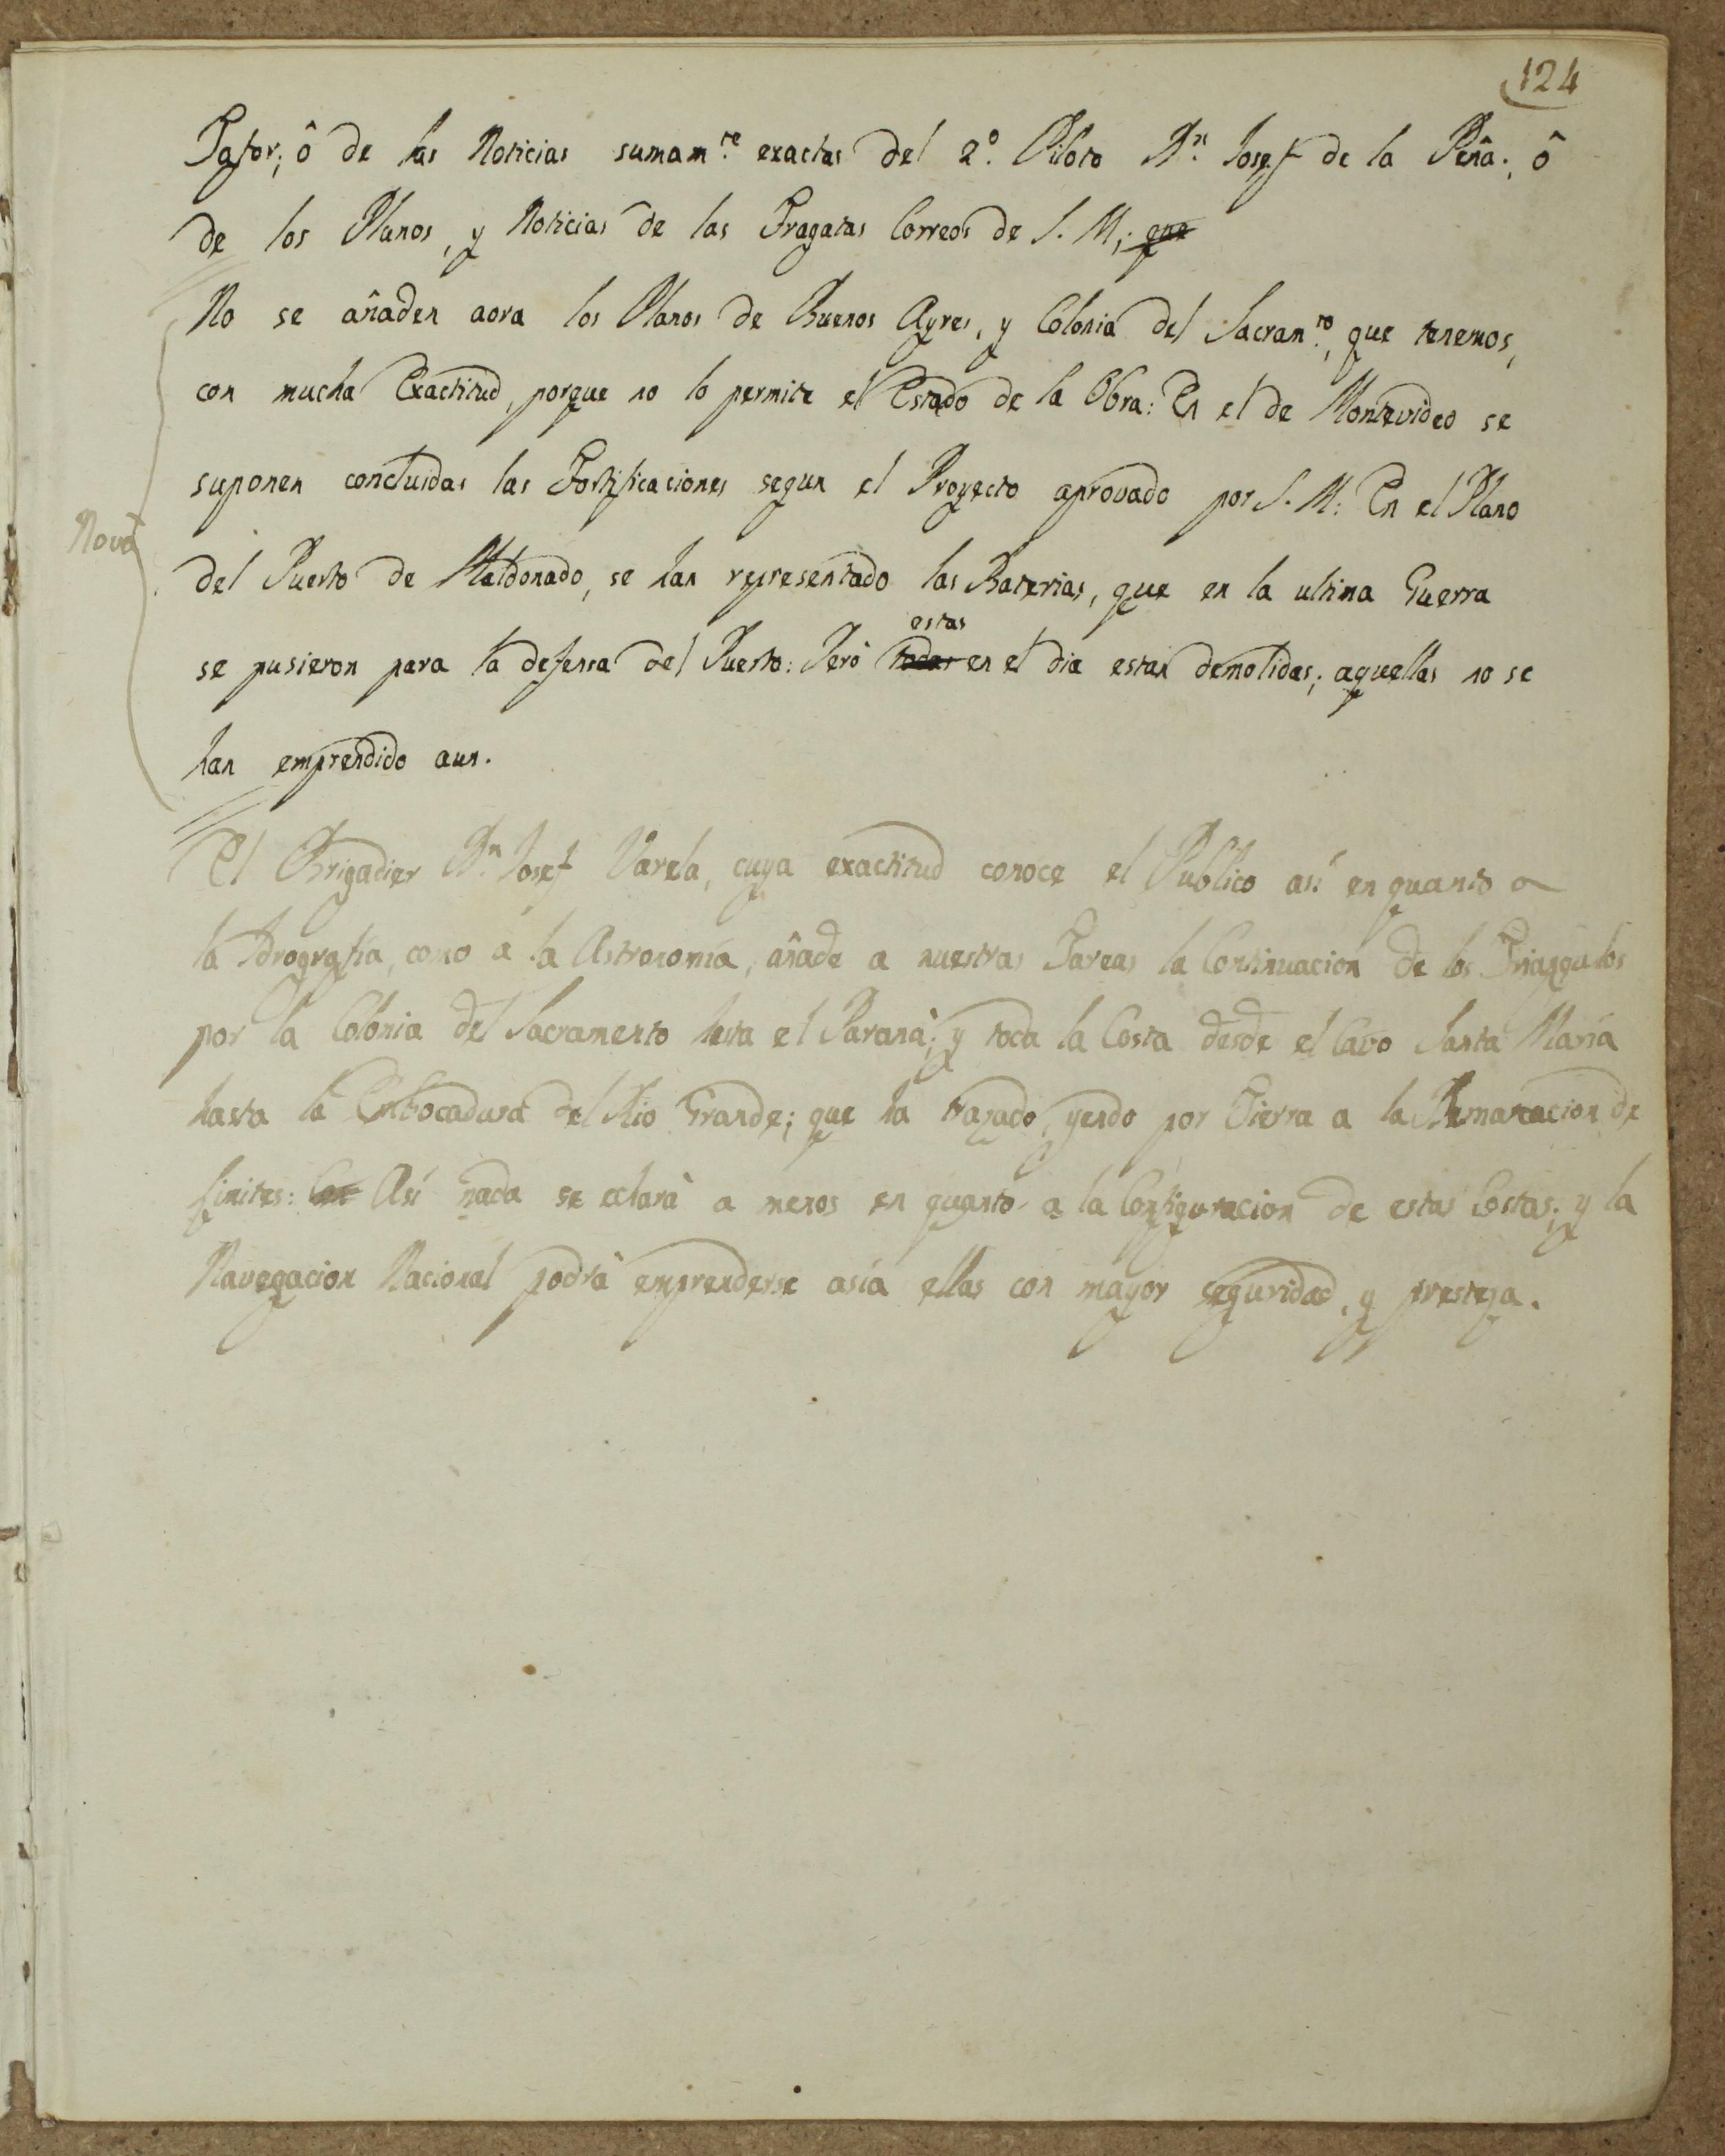 124
Tafor; ô de las Noticias sumam.te exactas del 2.º Piloto D.n Josef de la Peña; ô
de los Planos, y Noticias de las Fragatas Correos de S. M; que
No se añaden aora los Planos de Buenos Ayres, y Colonia del Sacram.to, que tenemos,
con mucha Exactitud, porque no lo permite el Estado de la Obra: En el de Montevideo se
suponen concluidas las Fortificaciones segun el Proyecto aprovado por S. M: En el Plano
Nota
del Puerto de Maldonado, se han representado las Baterias, que en la ultima Guerra
estas
se pusieron para la defensa del Puerto: Pero todas en el dia estan demolidas; aquellas no se
han emprendido aun.
El Brigadier D.n Josef Varela, cuya exactitud conoce el Publico asi en quanto a
la Idrografia, como a la Astronomía, añade a nuestras Tareas la Continuacion de los Triangulos
por la Colonia del Sacramento hasta el Paranà; y toda la Costa desde el Cavo Santa María
hasta la Embocadura del Rio Grande; que ha trazado, yendo por Tierra a la Demarcacion de
Limites: Así nada se echarà a menos en quanto a la Configuracion de estas Costas; y la
Navegacion Nacional podrà emprenderse asía ellas con mayor seguridad, y presteza.